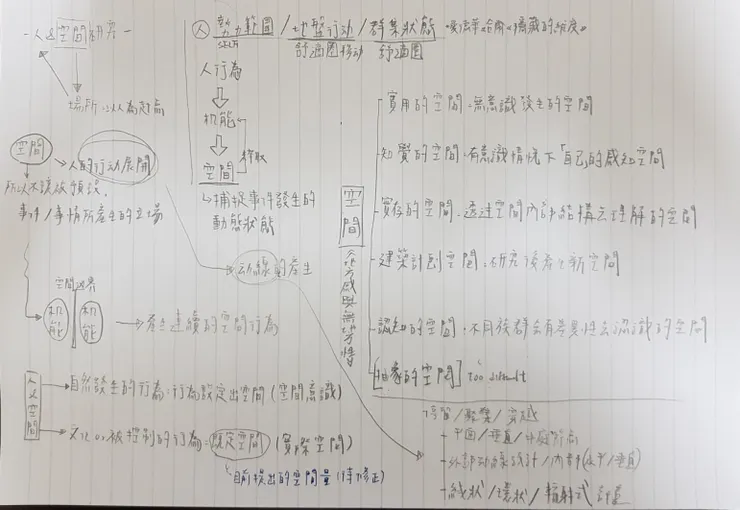 -人&空間研究-
場所:以人為起點
空間
→人的行動展開
所以不該被預設,
事件/事情所產生的立場
空間邊界
机能 机能
→產生連續的空間行為
人&空間
自然發生的行為:行為設定出空間(空間意識)
文化or被控制的行為=既定空間(實際空間)
目前提出的空間量(待修正)
人 勢力範圍/地盤行动/群集狀態
舒適圈移动 舒適圈
人行為
机能
空間
↳捕捉事件發生的
動態狀態
→动線的產生
空間
實用的空間:無意識談生的空間
知覺的空間:有意識情況下「自己」的感知空間
實存的空間:透過空間內部結構去理解的空間
建築計劃空間:研究後產生新空間
認知的空間:不同族群會有差異性去認識的空間
[抽象的空間] too difficult
停留/聚集/穿越
平面/垂直/
外部动線設計/內部(水平/垂直)
線狀/環狀/輻射式